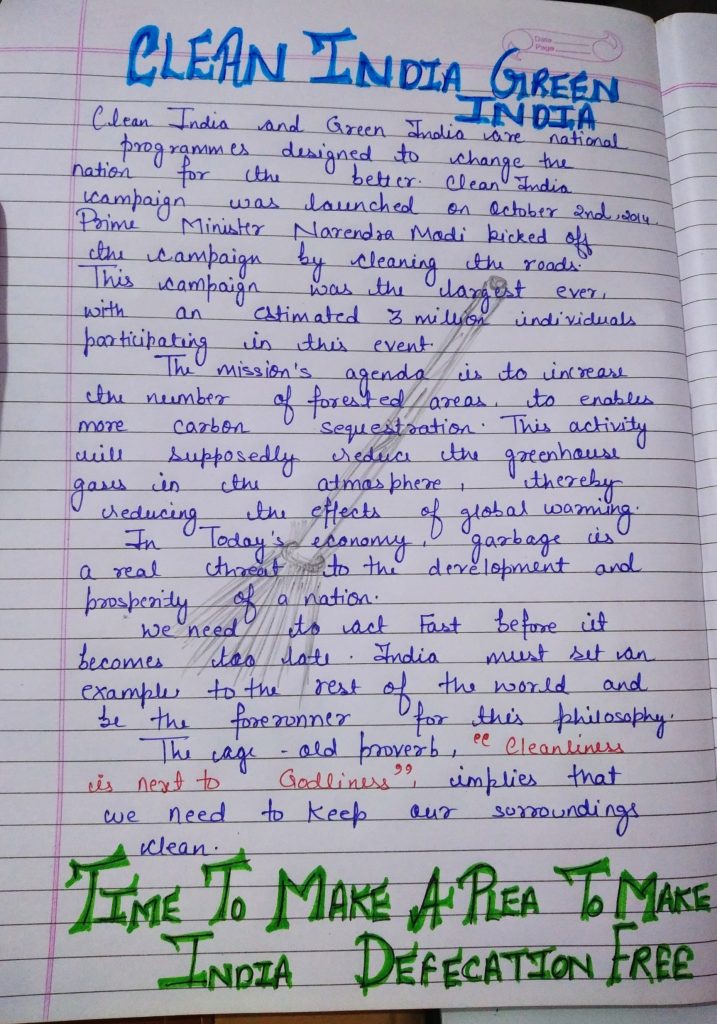 Date
Page
CLEAN INDIA GREEN
INDIA
Clean India and Green India are national
programmes designed to change the
nation for the better. Clean India
campaign was launched on October 2nd, 2014.
Prime Minister Narendra Modi kicked off
the campaign by cleaning the roads.
This campaign was the largest ever,
with an estimated 3 million individuals
participating in this event.
The mission's agenda is to increase
the number of forested areas, to enables
more carbon sequestration. This activity
will supposedly reduce the greenhouse
gases in the atmosphere, thereby
reducing the effects of global warming.
In Today's economy, garbage is
a real threat to the development and
prosperity of a nation.
We need to act Fast before it
becomes too late. India must set an
example to the rest of the world and
be the forerunner for this philosophy.
The age-old proverb, "Cleanliness
is next to Godliness", implies that
we need to keep our surroundings
clean.
TIME TO MAKE A PLEA TO MAKE
INDIA DEFECATION FREE